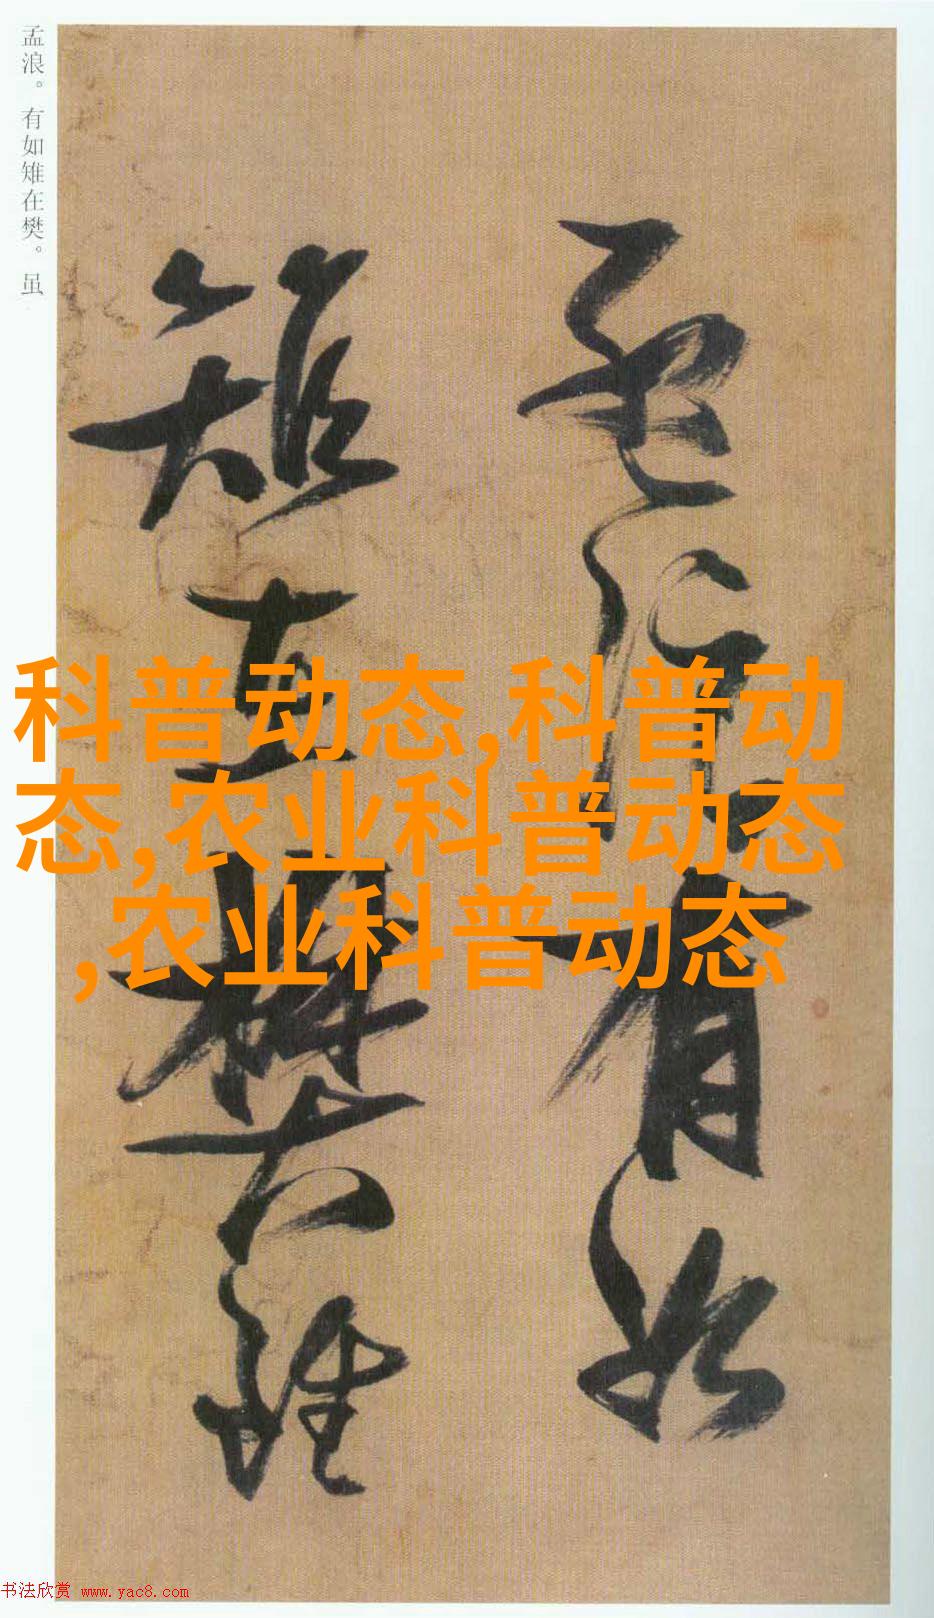 孟浪。有如雉在樊。虽
孟浪有如
雉在樊虽
科普动态,科普动
态,农业科普动态
,农业科普动态
书法欣赏 www.yac8.com